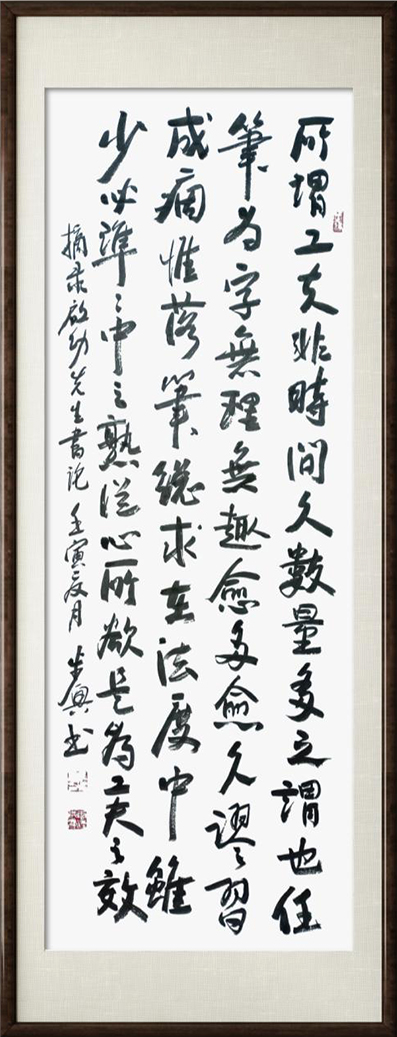 所謂工夫非時間久數量多之謂也任
筆為字無理無趣愈多愈久謬習
成痼惟落筆總求在法度中雖
少必準準中之熟從心所欲是為工夫之效
摘录啟功先生書论壬寅夏月步興书